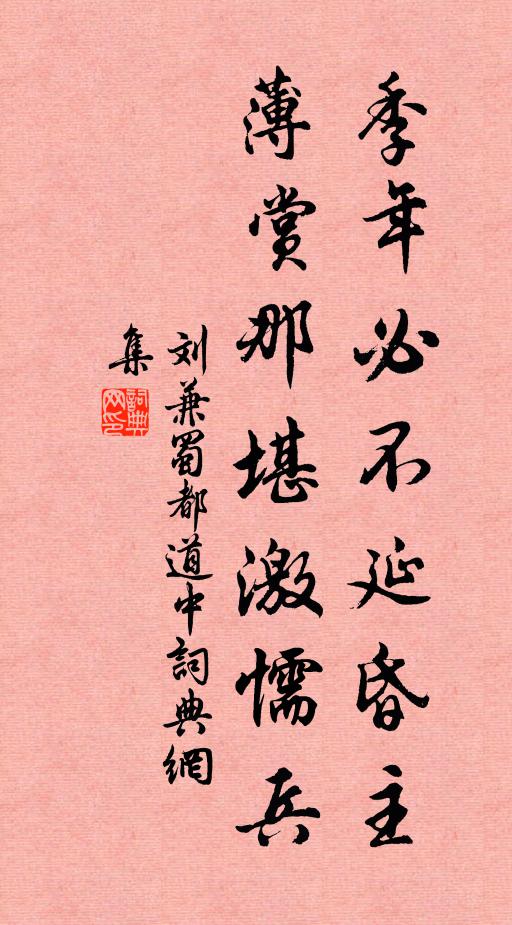 季年必不延昏主
薄賞那堪激懦兵
刘兼蜀都道中詞典網
集
詞典
网印